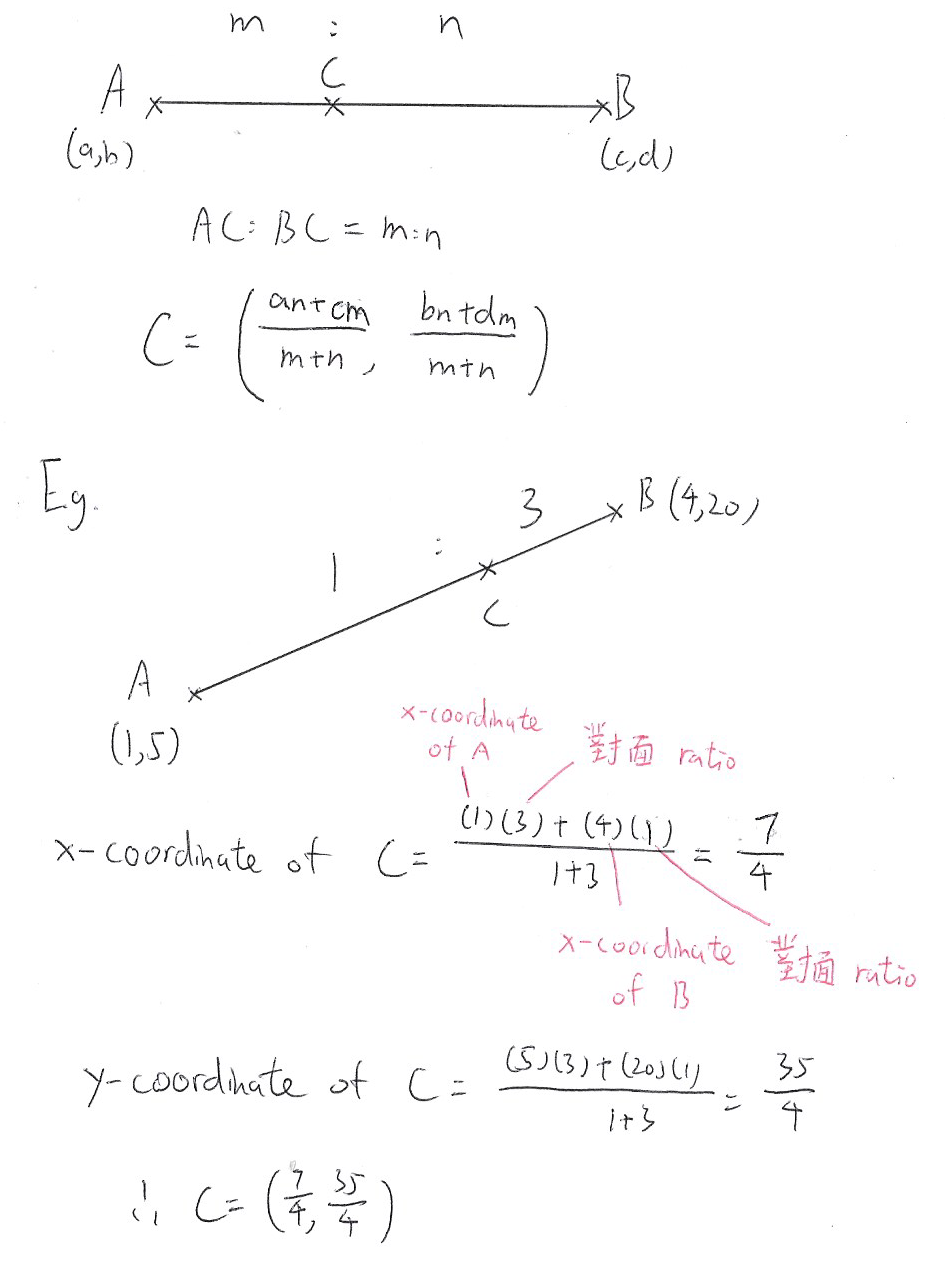 m : n
C
A B
(a,b) (c,d)
AC:BC = m:n
C = ( an+cm / m+n , bn+dm / m+n )
Eg.
3 B (4,20)
1 :
C
A
(1,5)
x-coordinate of A 對面 ratio
x-coordinate of C = (1)(3)+(4)(1) / 1+3 = 7/4
x-coordinate of B 對面 ratio
y-coordinate of C = (5)(3)+(20)(1) / 1+3 = 35/4
∴ C = (7/4, 35/4)